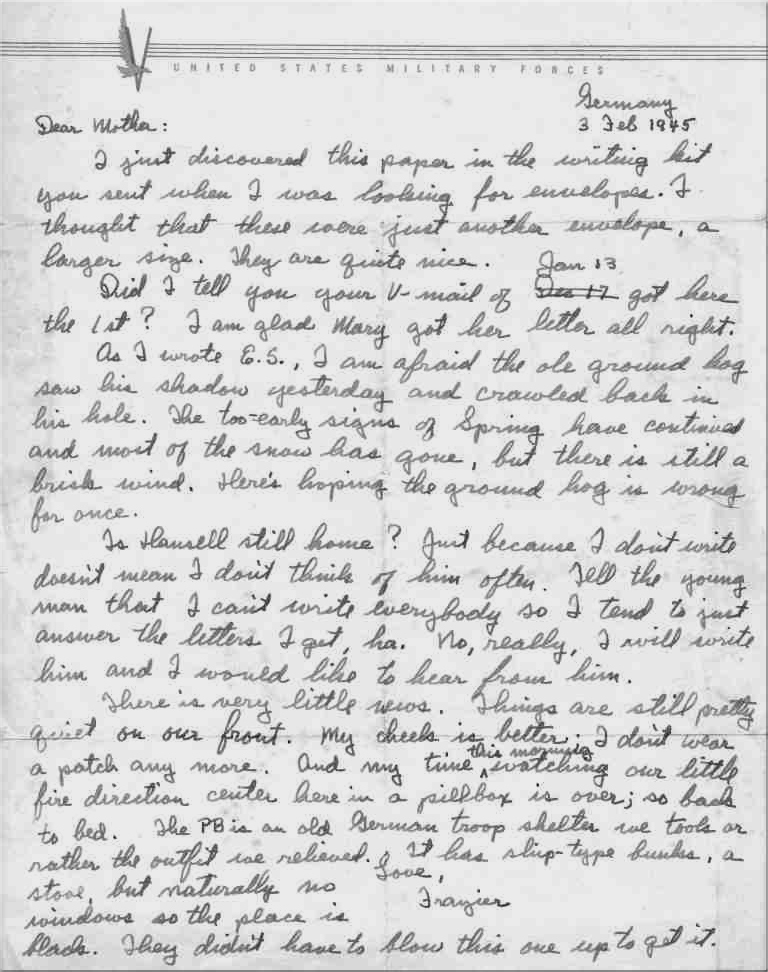 UNITED STATES MILITARY FORCES
Germany
3 Feb 1945
Dear Mother:
I just discovered this paper in the writing kit
you sent when I was looking for envelopes. I
thought that these were just another envelope, a
larger size. They are quite nice.
Jan 13
Did I tell you your V-mail of Dec 17 got here
the 1st? I am glad Mary got her letter all right.
As I wrote E.S., I am afraid the ole ground hog
saw his shadow yesterday and crawled back in
his hole. The too-early signs of Spring have continued
and most of the snow has gone, but there is still a
brisk wind. Here's hoping the ground hog is wrong
for once.
Is Hansell still home? Just because I don't write
doesn't mean I don't think of him often. Tell the young
man that I can't write everybody so I tend to just
answer the letters I get, ha. No, really, I will write
him and I would like to hear from him.
There is very little news. Things are still pretty
quiet on our front. My cheek is better; I don't wear
this morning
a patch any more. And my time watching our little
fire direction center here in a pillbox is over; so back
to bed. The PB is an old German troop shelter we took or
rather the outfit we relieved. It has ship-type bunks, a
stove, but naturally no
windows so the place is
black. They didn't have to blow this one up to get it.
Love,
Frazier